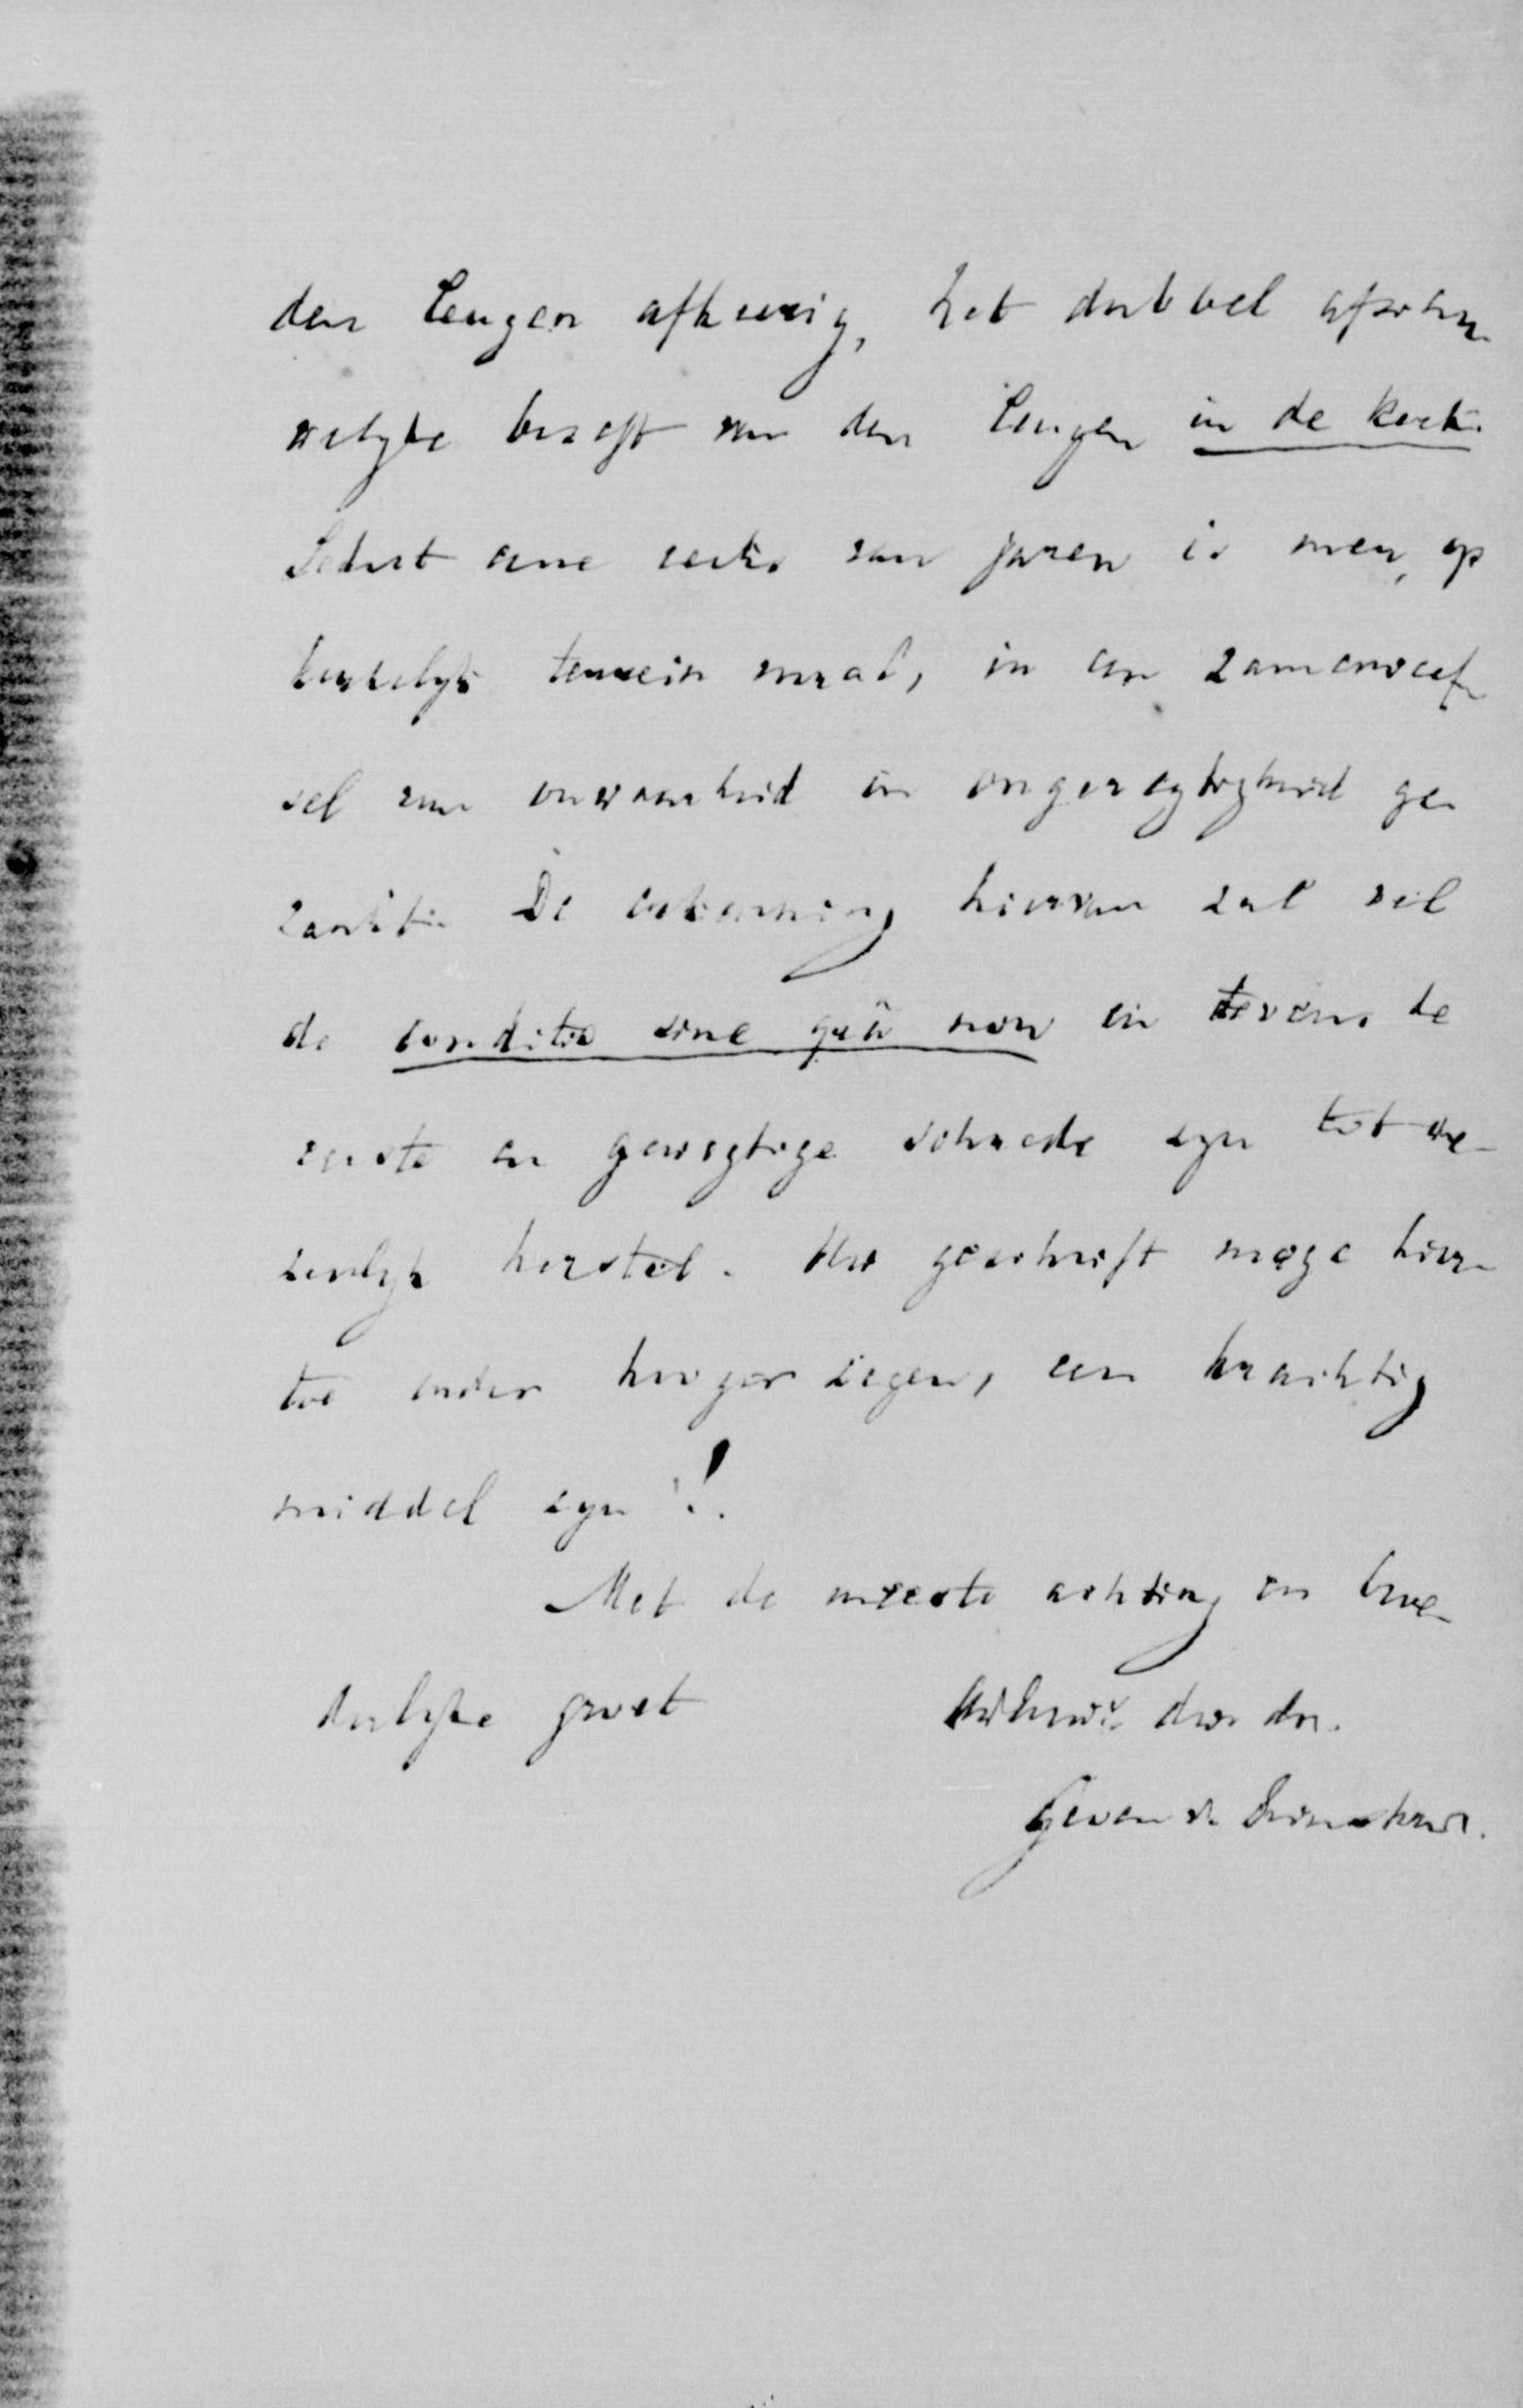 den leugen afkeerig, het dubbel afschu-
welyke beseft van den leugen in de kerk.
Sedert eene reeks van jaren is men, op
kerkelyk terrein vooral, in een zamenweef-
sel van onwaarheid en ongeregtigheid ge-
raakt. De erkenning hiervan zal wel
de conditio sine quâ non en tevens de
eerste en gewigtige schrede zyn tot we-
zenlyk herstel. Uw geschrift moge hier-
toe onder hooger zegen, een krachtig
middel zyn!
Met de meeste achting en broe-
derlyke groet